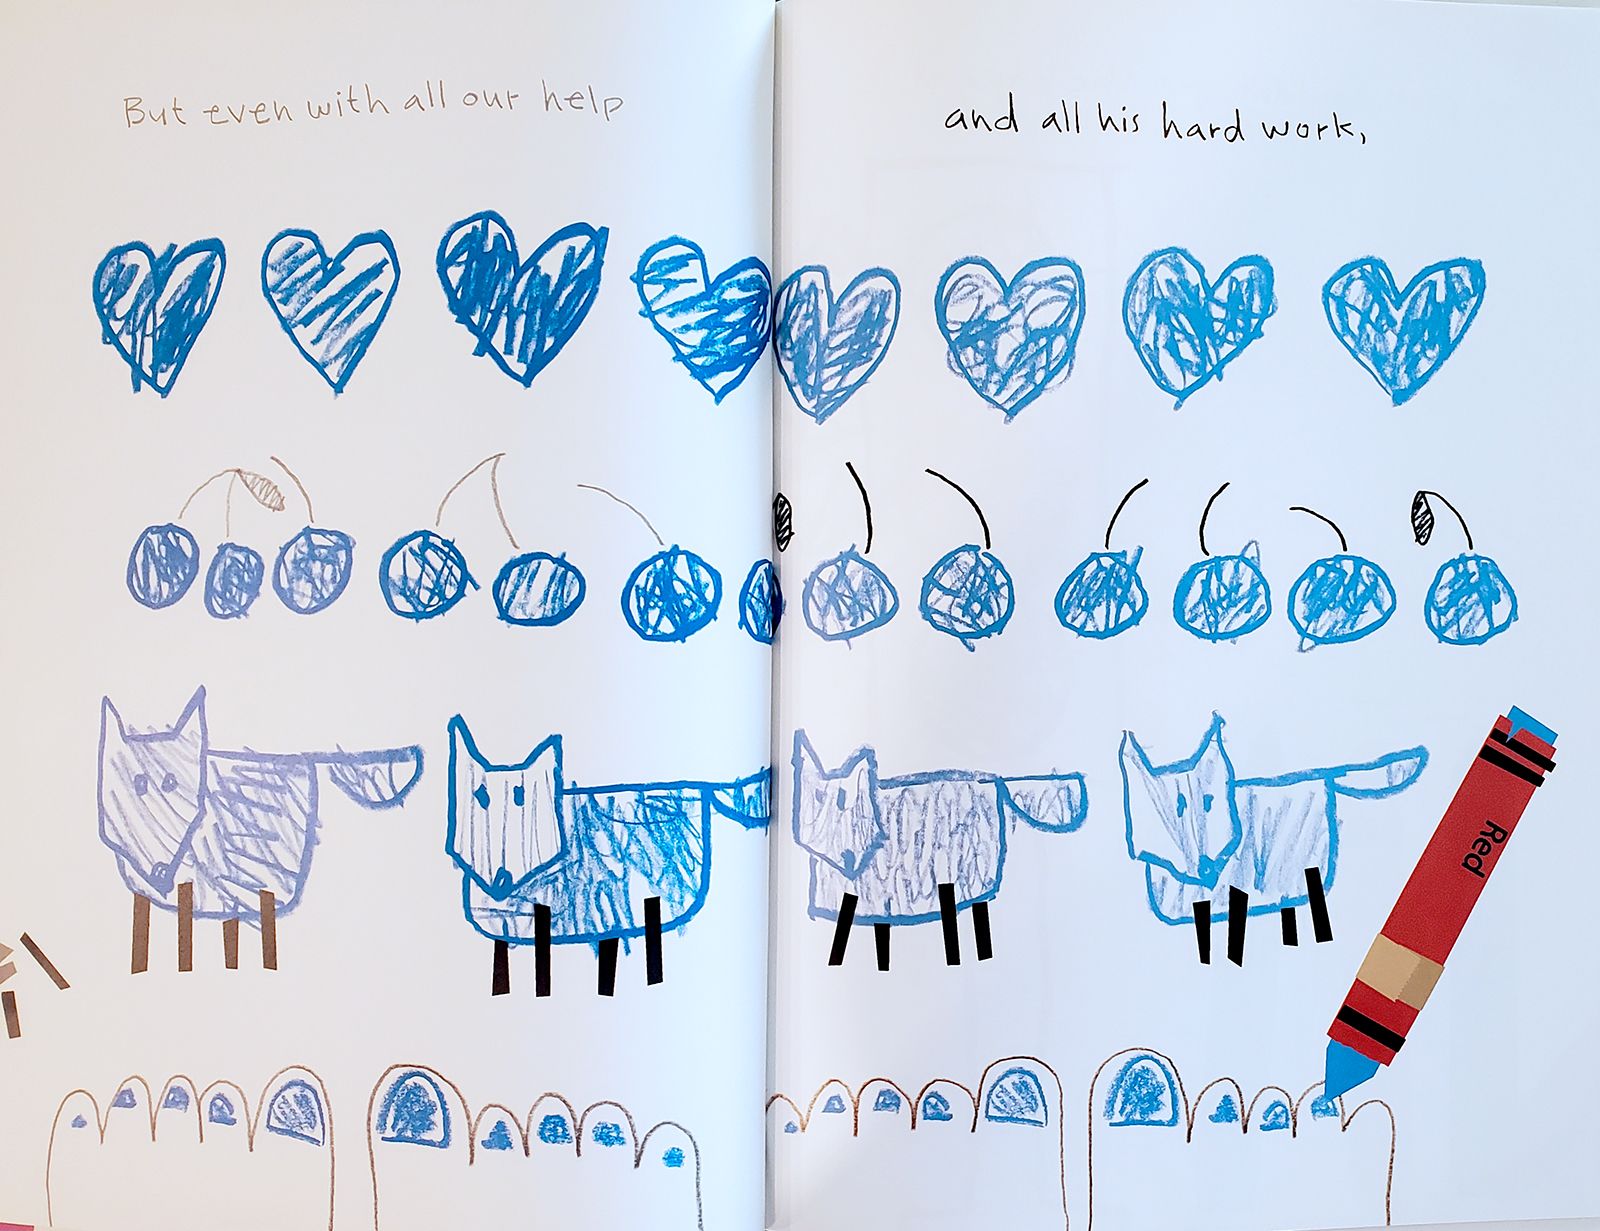 But even with all our help
and all his hard work,
Red